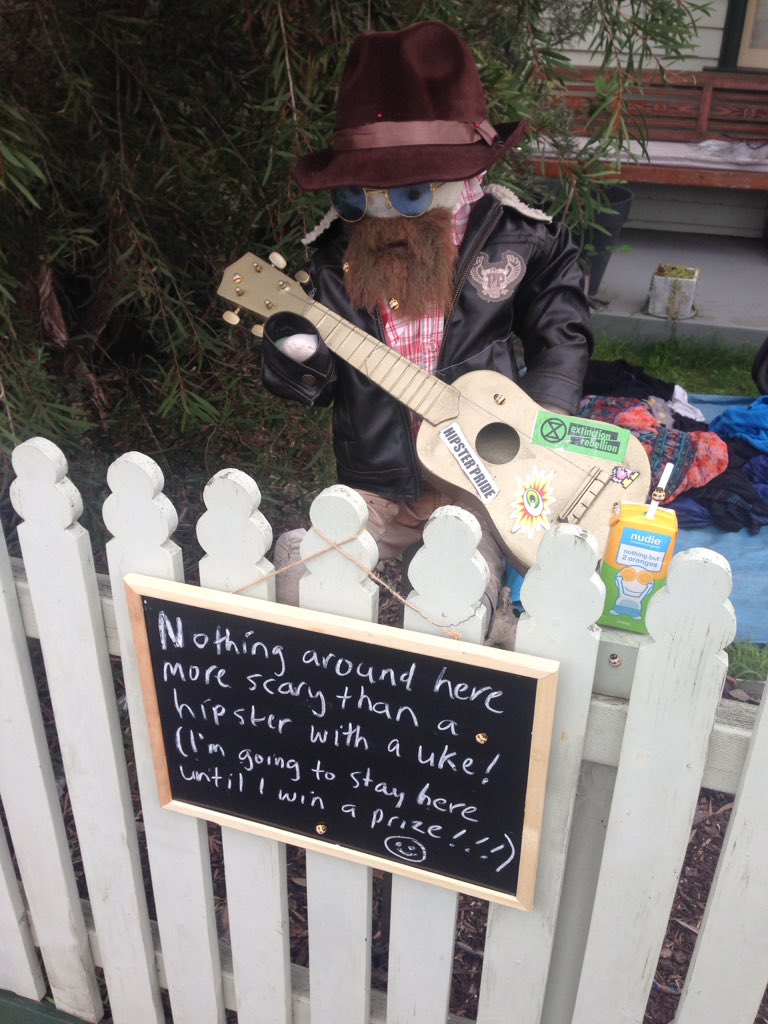 extinction
rebellion
HIPSTER PRIDE
nudie
nothing but
2 oranges
Nothing around here
more scary than a
hipster with a uke!
(I'm going to stay here
until I win a prize!!!)